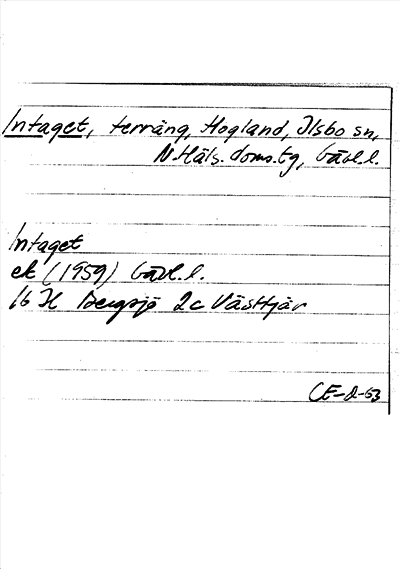 Intaget, terräng, Hogland, Ilsbo sn,
N. Häls. doms.tg, Gävl.l.
Intaget
ek (1959) Gävl.l.
16 H Bergsjö 2c Västtjär
CE-2-63